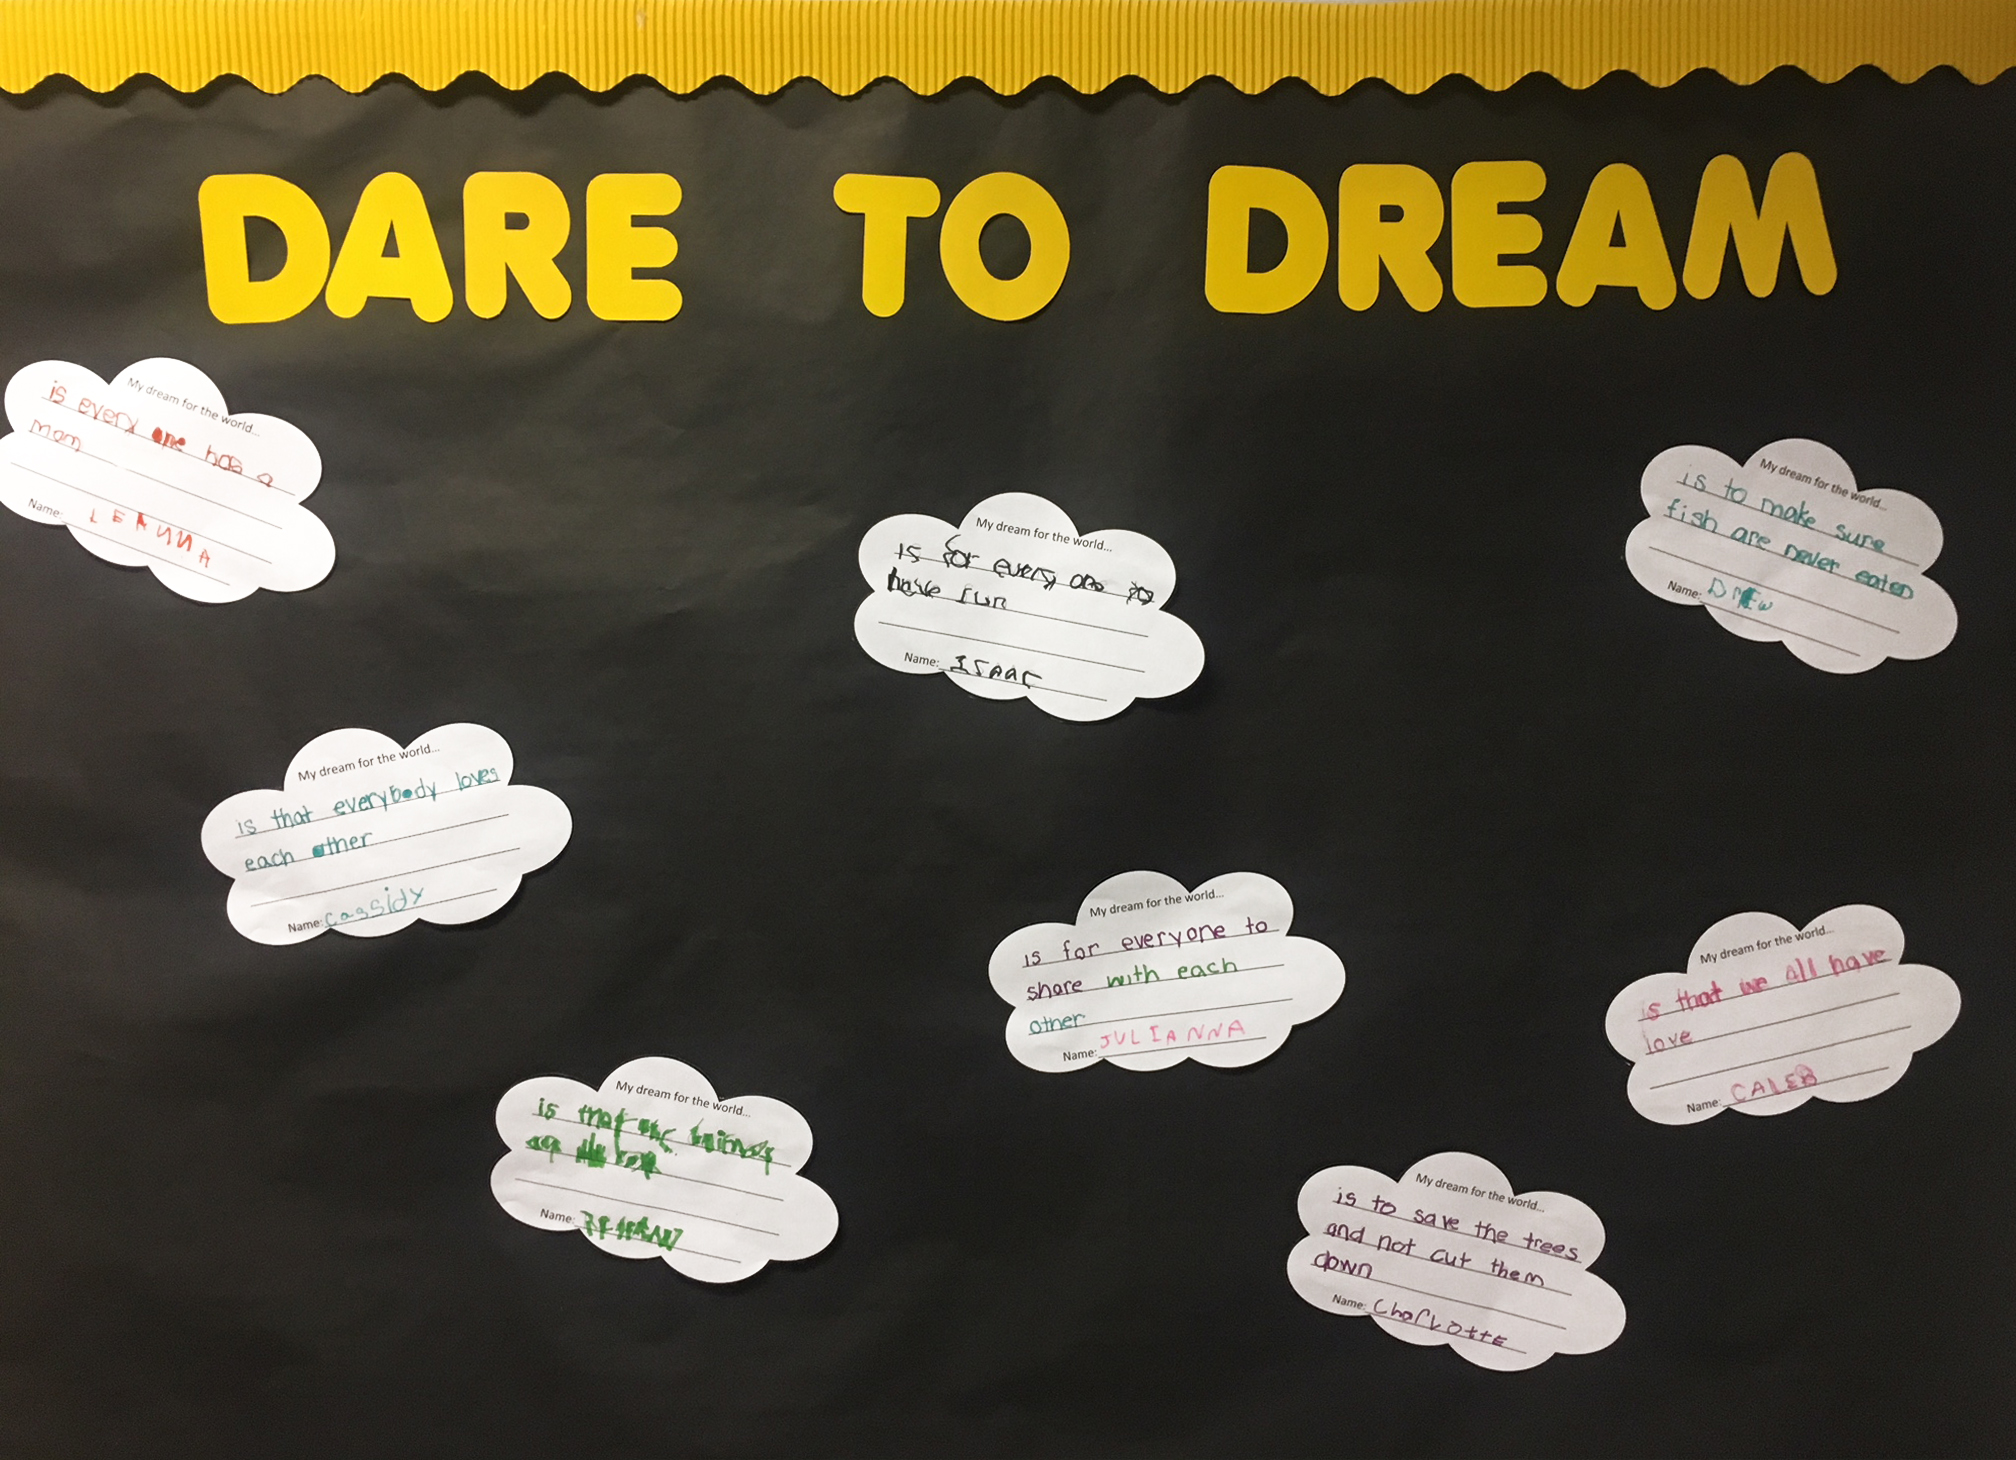 DARE TO DREAM
My dream for the world...
is every one has a
mom
Name: LEANNA
My dream for the world...
is for every one to
have fun
Name: ISAAC
My dream for the world...
is to make sure
fish are never eaten
Name: DREW
My dream for the world...
is that everybody loves
each other
Name: Cassidy
My dream for the world...
is for everyone to
share with each
other
Name: JULIANNA
My dream for the world...
is that we all have
love
Name: CALEB
My dream for the world...
is that
Name:
My dream for the world...
is to save the trees
and not cut them
down
Name: CharLotte